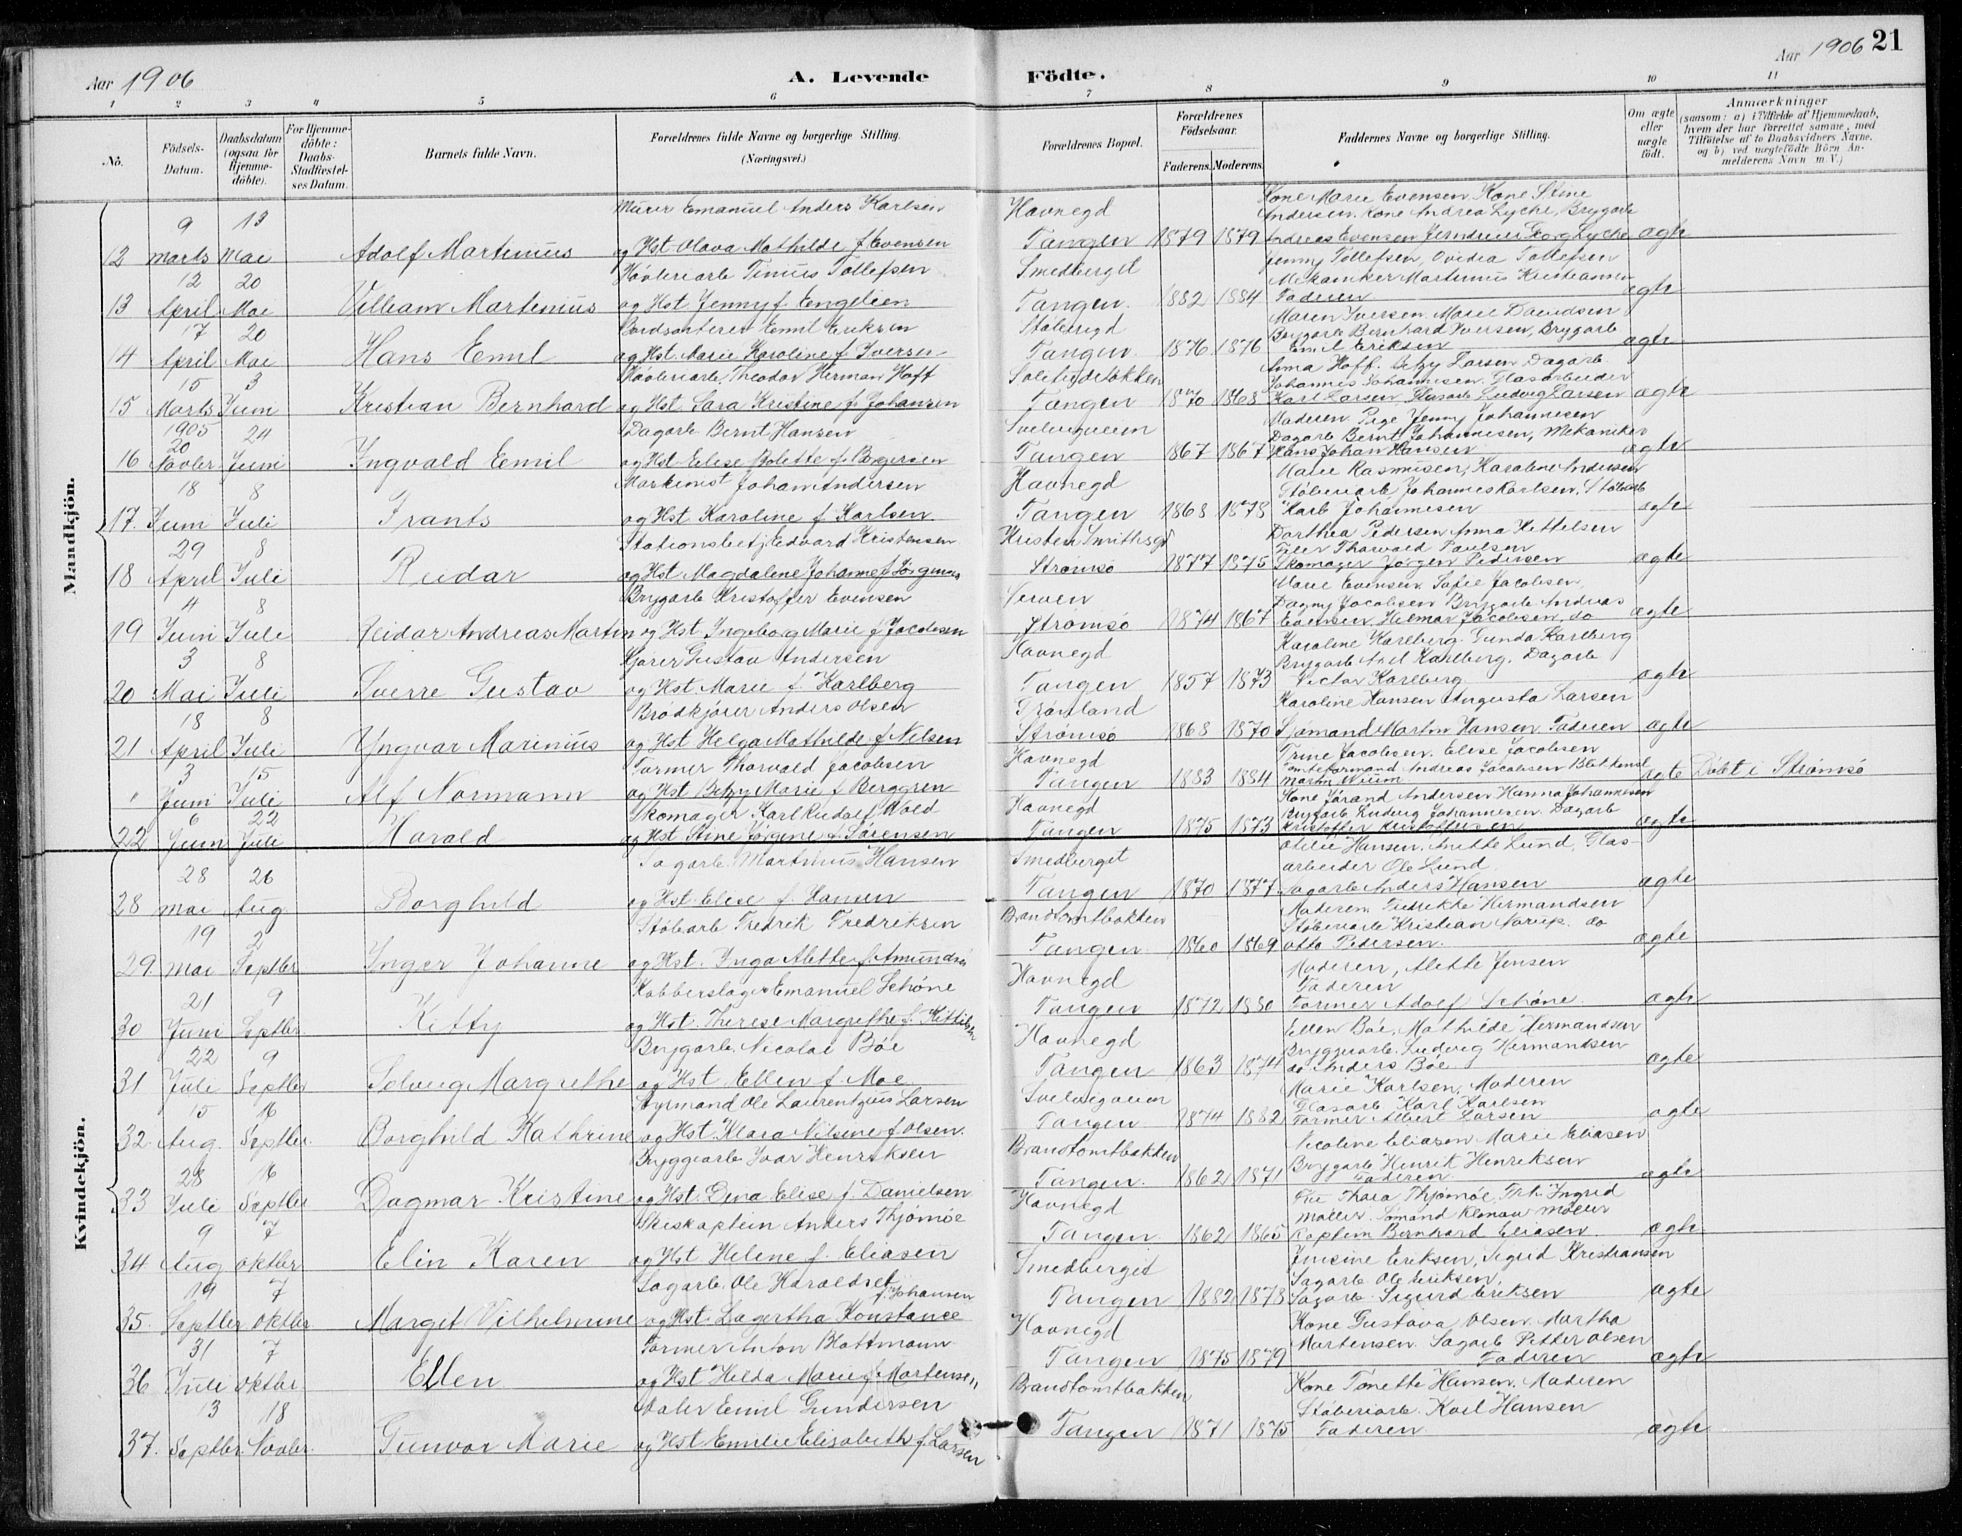 Aar 1906
A. Levende Födte.
Aar 1906 21
1 2 3 4 5 6 7 8 9 10 11
No.
Födsels-Datum.
Daabsdatum (ogsaa for Hjemme-döbte).
For Hjemme-döbte: Daabs-Stadfæstel-ses Datum.
Barnets fulde Navn.
Forældrenes fulde Navne og borgerlige Stilling. (Næringsvei.)
Forældrenes Bopæl.
Forældrenes Födselsaar.
Faderens. Moderens.
Faddernes Navne og borgerlige Stilling.
Om ægte eller uægte födt.
Anmærkninger
(saasom: a) i Tilfælde af Hjemmedaab, hvem der har forrettet samme, med Tilföielse af to Daabsvidners Navne. og b) ved uægtefödte Börn An-melderens Navn m. V.)
Mandkjön.
12 9 Marts 13 Mai Adolf Martinius
Murer Emanuel Anders Karlsen
og Hst Olava Mathilde f Evensen
Havnegd Tangen 1879 1879
Kone Marie Evensen Kone Stine
Andersen. Kone Andrea Lyche, Brygarb
Andreas Evensen Georg Lyche ægte
13 12 April 20 Mai William Martinius
Høvleriarb Timus Tollefsen
og Hst Jenny f. Engelien
Smedberget Tangen. 1882 1884
Jenny Tollefsen, Ovidia Tollefsen
Mekaniker Martinius Kristiansen
Faderen ægte
14 17 April 20 Mai Hans Emil
Bordsorterer Emil Eriksen
og Hst Marie Karoline f. Iversen
Støberigd Tangen. 1876 1876
Maren Iversen. Marie Davidsen
Brygarb Bernhard Iversen, Brygarb
Emil Eriksen ægte
15 15 Marts 3 Juni Kristian Bernhard
Høvleriarb. Theodor Herman Hoff
og Hst. Sara Kristine f. Johansen
Tangen 1870 1868
Anna Hoff. Betzy Larsen Dagarb.
Johannes Johannesen. Glasarbeider
Karl Larsen Glasarb Ludvig Larsen ægte
16 1905 20 Novbr 24 Juni Ingvald Emil
Dagarb Bernt Hansen
og Hst. Elise Bolette f. Børgersen
Tangen 1867 1867
Moderen Pige Jenny Johannesen
Dagarb Bernt Johannesen, Mekaniker
Hans Johan Hansen ægte
17 18 Juni 8 Juli Frants
Maskinist Johan Andersen
og Hst Karoline f. Karlsen.
Havnegd Tangen 1868 1878
Marie Rasmussen, Karoline Andersen
Støberiarb Johannes Karlsen. Støbarb
Karl Johannesen ægte
18 29 April 8 Juli Reidar
Stationsbetj. Edvard Kristensen
og Hst Magdalene Johanne f. Jørgensen
Kristen Smithsgd Strømsø 1877 1875
Dorthea Pedersen Anna Kittelsen
Filer Thorvald Paulsen
Skomager Jørgen Pedersen ægte
19 4 Juni 8 Juli Reidar Andreas Martin
Brygarb Kristoffer Evensen
og Hst Ingeborg Marie f Jacobsen
Strømsø 1874 1867
Marie Evensen. Sofie Jacobsen,
Dagny Jacobsen Brygarb Andreas
Evensen, Hilmar Jacobsen, do ægte
20 3 Mai 8 Juli Sverre Gustav
Kjører Gustav Andersen
og Hst Marie f. Karlberg
Havnegd Tangen 1857 1873
Karoline Karlberg. Gunda Karlberg
Brygarb Axel Karlberg. Dagarb
Victor Karlberg ægte
21 18 April 8 Juli Yngvar Marinius
Brødkjører Anders Olsen
og Hst Helga Mathilde f Nilsen
Grønland Strømsø 1868 1870
Karoline Hansen Augusta Larsen
Sjømand Martin Hansen Faderen ægte
" 3 Juni 15 Juli Alf Normann
Former Thorvald Jacobsen
og Hst Betzy Marie f Berggren
Havnegd Tangen 1883 1884
Trine Jacobsen. Elise Jacobsen
Tomteformand Andreas Jacobsen
ægte Døbt i Strømsø
22 6 Juni 22 Juli Harald
Skomager Karl Rudolf Wold
og Hst Stine Jørgine f. Sørensen
Havnegd Tangen 1875 1873
Kone Jørand Andersen Hanna Johannesen
Brygarb Ludvig Johannesen. Dagarb
Kristoffer Kristoffersen ægte
Kvindekjön.
28 28 Mai 26 Aug Borghild
Sagarb. Martinius Hansen
og Hst Elise f Hansen
Smedberget Tangen 1870 1877
Otilie Hansen. Anette Lund, Glas-
arbeider Ole Lund
Sagarb Anders Hansen ægte
29 19 Mai 2 Septbr Inger Johanne
Støbarb Fredrik Fredriksen
og Hst. Inga Alette f Amundsen
Brandtomtbakken Tangen. 1860 1869
Moderen Fredrikke Hermandsen
Støberiarb Kristian Norup. do
Otto Pedersen. ægte
30 21 Juni 9 Septbr Kitty
Kobberslager Emanuel Schøne
og Hst. Therese Margrethe f. Kittilsen
Havnegd Tangen 1872 1880
Moderen, Alette Jensen
Faderen
Former Adolf Schøne. ægte
31 22 Juli 9 Septbr Solveig Margrethe
Brygarb. Nicolai Bøe
og Hst Ellen f. Moe
Havnegd Tangen 1863 1874
Ellen Bøe, Mathilde Hermandsen
Bryggearb. Ludvig Hermandsen
do Anders Bøe ægte
32. 15 Aug. 16 Septbr. Borghild Kathrine
Styrmand Ole Laurentzius Larsen
og Hst. Klara Nilsine f Olsen.
Tangen 1874 1882
Marie Karlsen, Moderen
Glasarb Karl Karlsen
Former Albert Larsen ægte
33 28 Juli 16 Septbr Dagmar Kristine
Bryggearb Ivar Henriksen
og Hst. Gina Elise f. Danielsen
Brandtomtbakken Tangen. 1862 1871
Nicoline Eliasen Marie Eliasen
Brygarb Henrik Henriksen
Faderen. ægte
34 9 Aug 7 Oktbr Elin Karen
Skibskaptein Anders Thjømøe
og Hst Helene f. Eliasen
Havnegd Tangen 1862 1865
Fru Thora Thjømøe Frk. Ingrid
Møller. Sømand Møller
Kaptein Bernhard Eliasen. ægte
35. 19 Septbr 7 Oktbr Margit Vilhelmine
Sagarb. Ole Haraldset
og Hst. Lagertha Konstance f. Johansen
Smedberget Tangen 1882 1878
Jensine Eriksen, Sigrid Kristiansen
Sagarb Ole Eriksen,
Sagarb. Sigurd Eriksen ægte
36 31 Juli 7 Oktbr Ellen
Former Anton Blottmann
og Hst Hilda Marie f Martensen
Havnegd Tangen 1875 1879
Kone Gustava Olsen. Martha
Martensen. Sagarb Petter Olsen
Faderen ægte
37. 13 Septbr 18 Novbr. Gunvor Marie
Maler Emil Gundersen
og Hst Emilie Elisabeth f. Larsen
Brandtomtbakken Tangen 1871 1875
Kone Tonette Hansen. Moderen
Støberiarb. Karl Hansen
Faderen. ægte